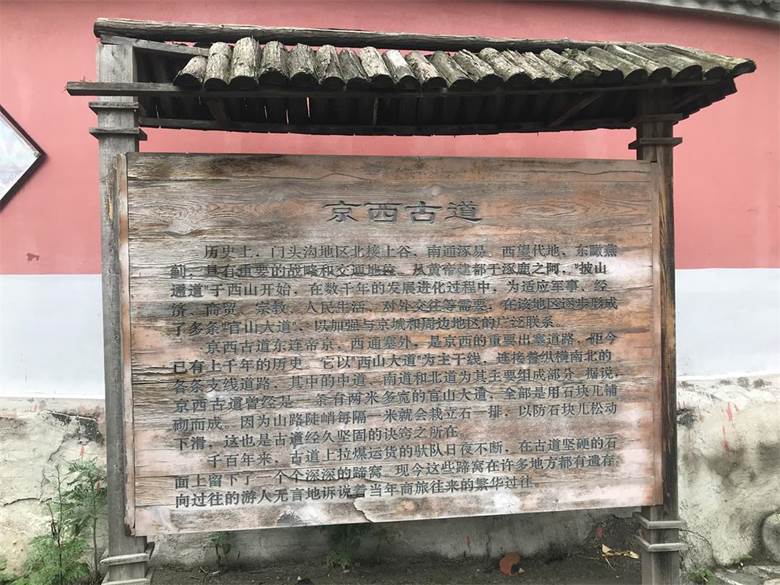 京西古道
历史上，门头沟地区北接上谷，南通涿易，西望代地，东瞰燕
蓟；具有重要的战略和交通地位。从黄帝建都于涿鹿之阿，"披山
通道"于西山开始，在数千年的发展进化过程中，为适应军事、经
济、商贸、宗教、人民生活、对外交往等需要，在该地区逐步形成
了多条"官山大道"、以加强与京城和周边地区的广泛联系。
京西古道东连帝京，西通塞外，是京西的重要出塞道路，距今
已有上千年的历史。它以"西山大道"为主干线，连接着纵横南北的
各条支线道路，其中的中道、南道和北道为其主要组成部分。据说，
京西古道曾经是一条有两米多宽的官山大道，全部是用石块儿铺
砌而成。因为山路陡峭每隔一米就会栽立石一排，以防石块儿松动
下滑，这也是古道经久坚固的诀窍之所在。
千百年来，古道上拉煤运货的驮队日夜不断，在古道坚硬的石
面上留下了一个个深深的蹄窝。现今这些蹄窝在许多地方都有遗存，
向过往的游人无言地诉说着当年商旅往来的繁华过往。